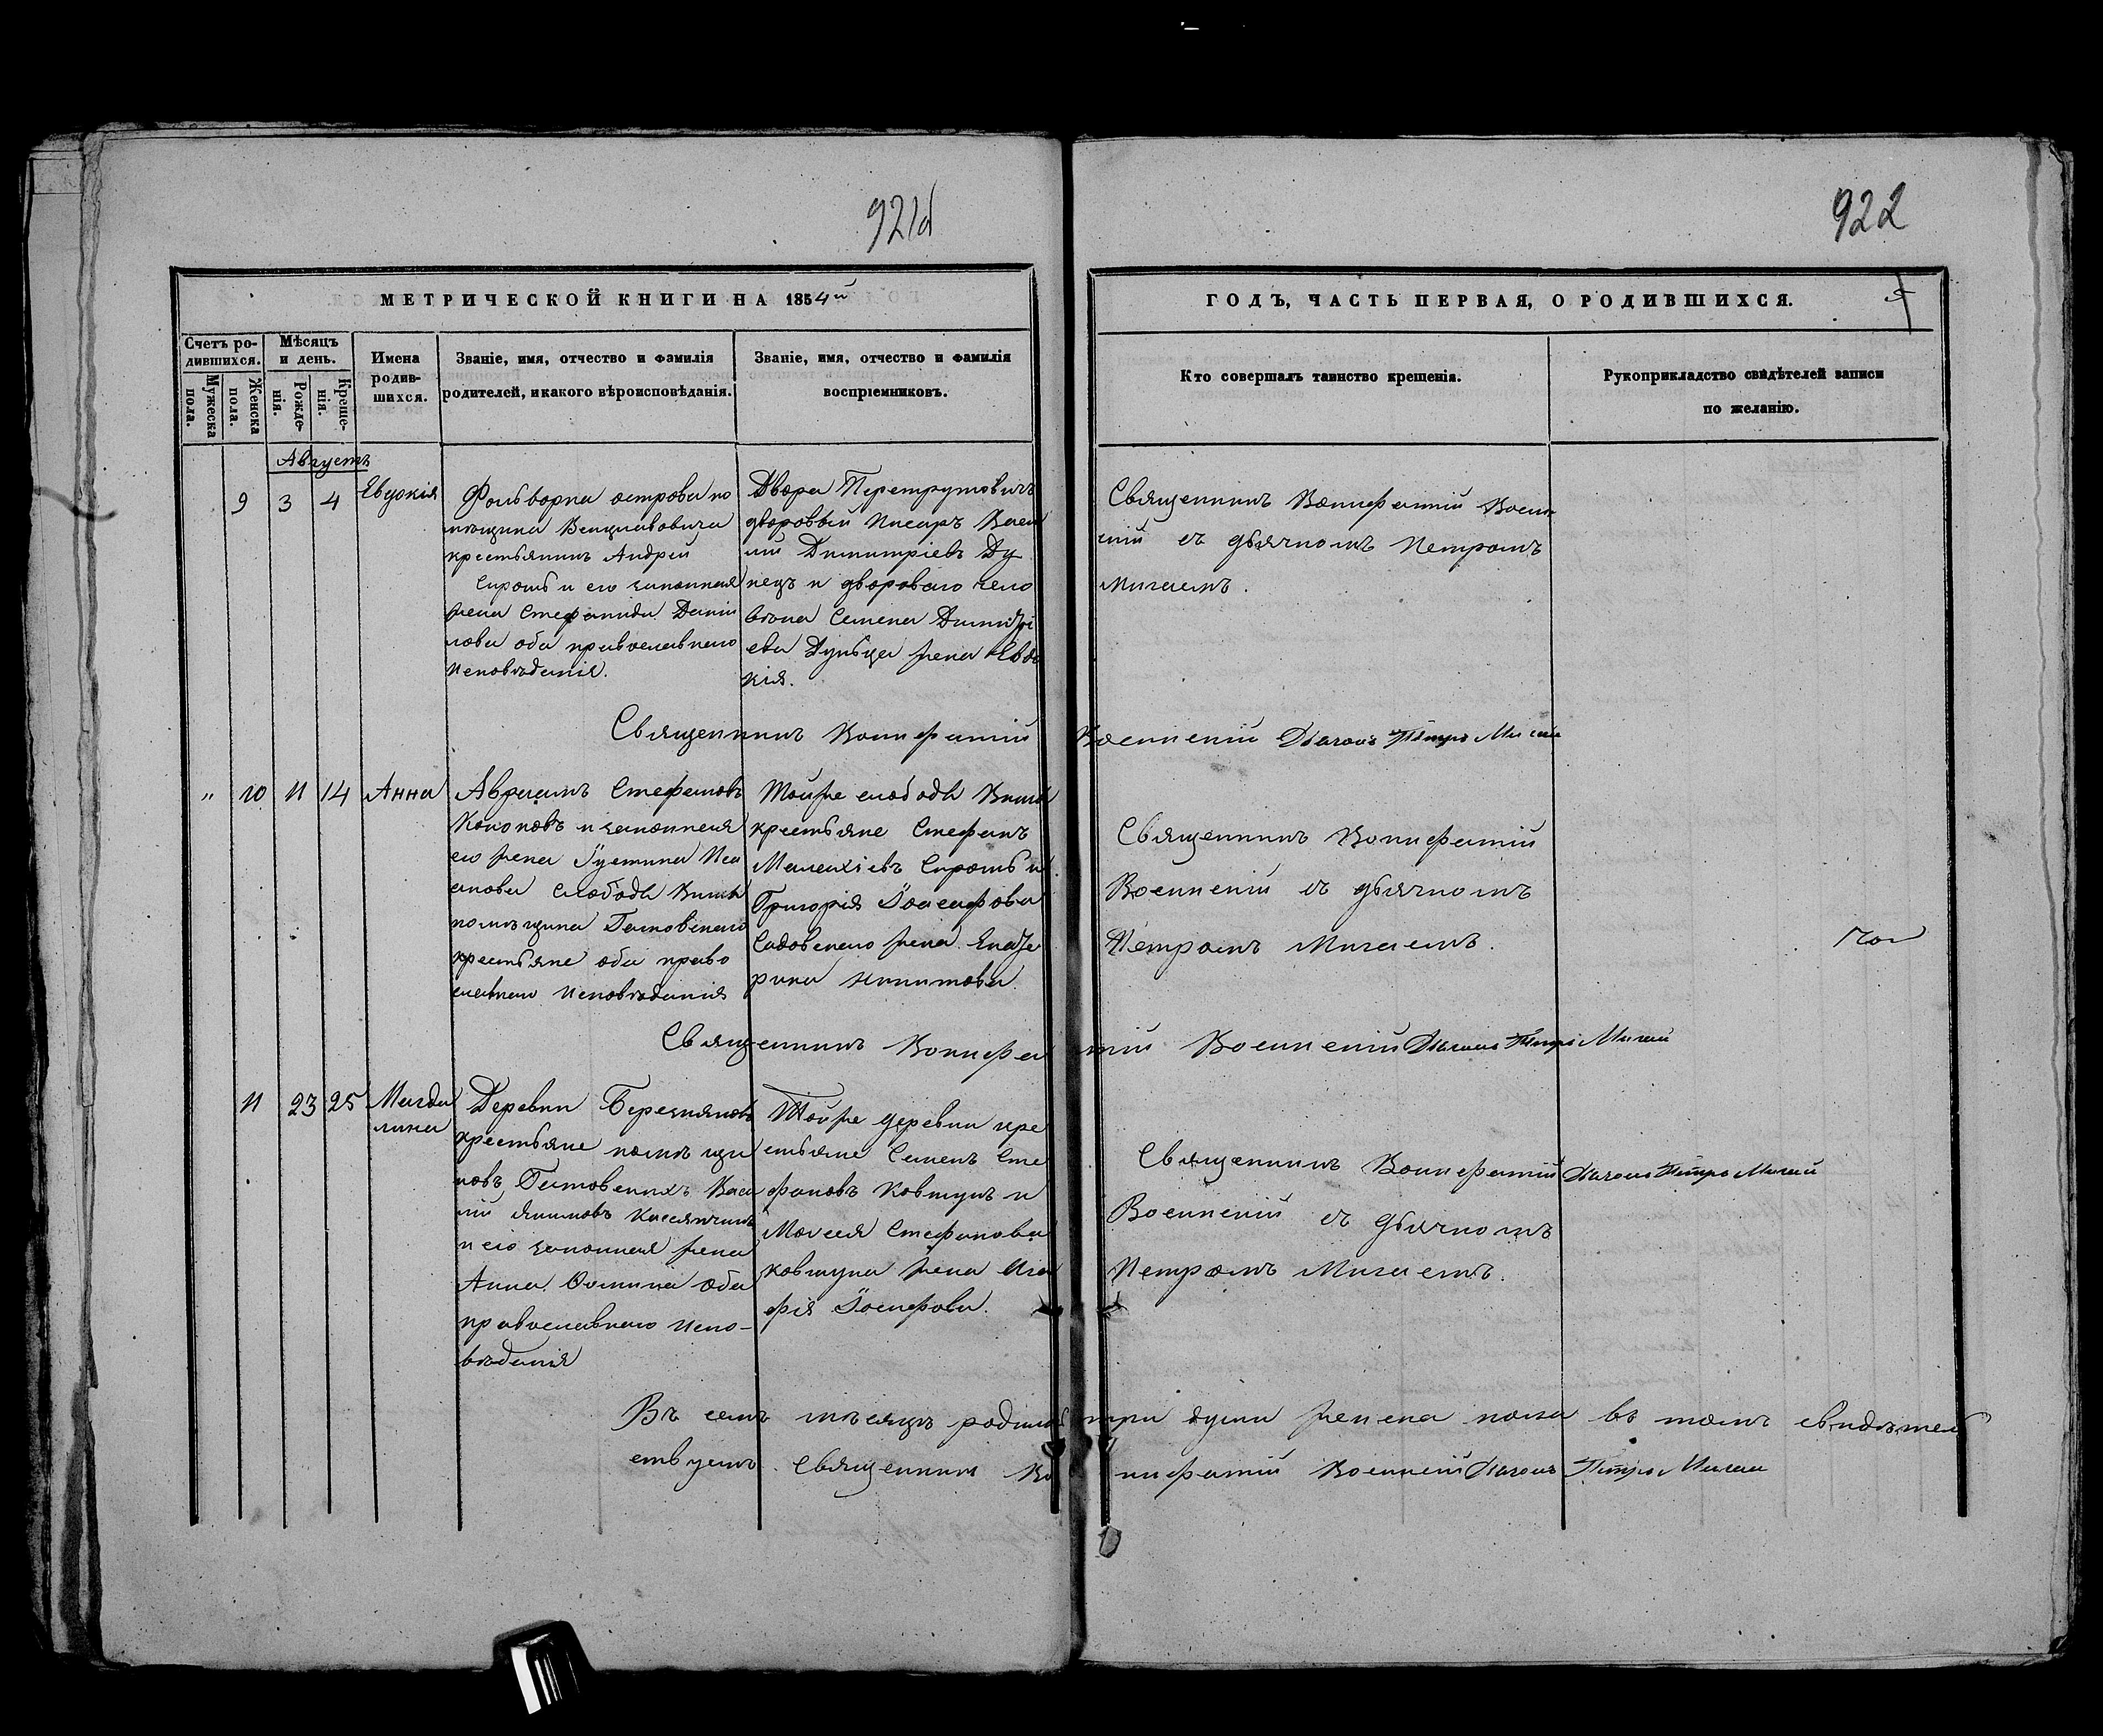 921б
922
МЕТРИЧЕСКОЙ КНИГИ НА 1854й
ГОДЪ, ЧАСТЬ ПЕРВАЯ, О РОДИВШИХСЯ.
Счетъ ро-
дившихся.
Мужеска
пола.
Женска
пола.
Мѣсяцъ
и день.
Рожде-
нія.
Креще-
нія.
Имена
родив-
шихся.
Званіе, имя, отчество и фамилія
родителей, и какого вѣроисповѣданія.
Званіе, имя, отчество и фамилія
воспріемниковъ.
Кто совершалъ таинство крещенія.
Рукоприкладство свидѣтелей записи
по желанію.
Августъ
9 3 4 Евдокія
Фольворка острова по
мѣщика
крестьянинъ Андрей
Сиротъ и его законная
жена Стефанида Дании
лова оба православнаго
исповѣданія.
Двора Перетрутовичъ
дворовый писарь Васи
лій Димитріевъ Ду
пецъ и двороваго чело
вѣка Семена Димитрі
ева Дупьца жена Евдо
кія.
Священникъ Вонифатій Воснн
скій съ дьячкомъ Петромъ
Мигаемъ.
Священникъ Вонифатій Воснинскій Дьячокъ Петръ Мигай
" 10 11 14 Анна
Авраамъ Стефановъ
Кононовъ и законная
его жена Іустина Иса
акова слободы
помѣщика Гановскаго
крестьяне оба право
славнаго исповѣданія
Тойже слободы
крестьяне Стефанъ
Малахіевъ Сиротъ и
Григорія Іосифова
Садовскаго жена Екате
рина Никитова
Священникъ Вонифатій
Воснинскій съ дьячкомъ
Петромъ Мигаемъ.
Священникъ Вонифатій Воснинскій Дьячокъ Петръ Мигай
11 23 25 Магда
лина
Деревни
крестьяне помѣщи
ковъ Гановскихъ Васи
лій Якимовъ
и его законная жена
Анна Фомина оба
православнаго испо-
вѣданія
Тойже деревни кре
стьяне Семенъ Сте
фановъ Ковтунъ и
Моисея Стефанова
Ковтуна жена Ага
фія Іосифова.
Священникъ Вонифатій
Воснинскій съ дьячкомъ
Петромъ Мигаемъ.
Дьячокъ Петръ Мигай
Въ семъ мѣсяцѣ родилось три души женска пола въ томъ свидѣтель
ствуемъ. Священникъ Вонифатій Воснинскій Дьячокъ Петръ Мигай